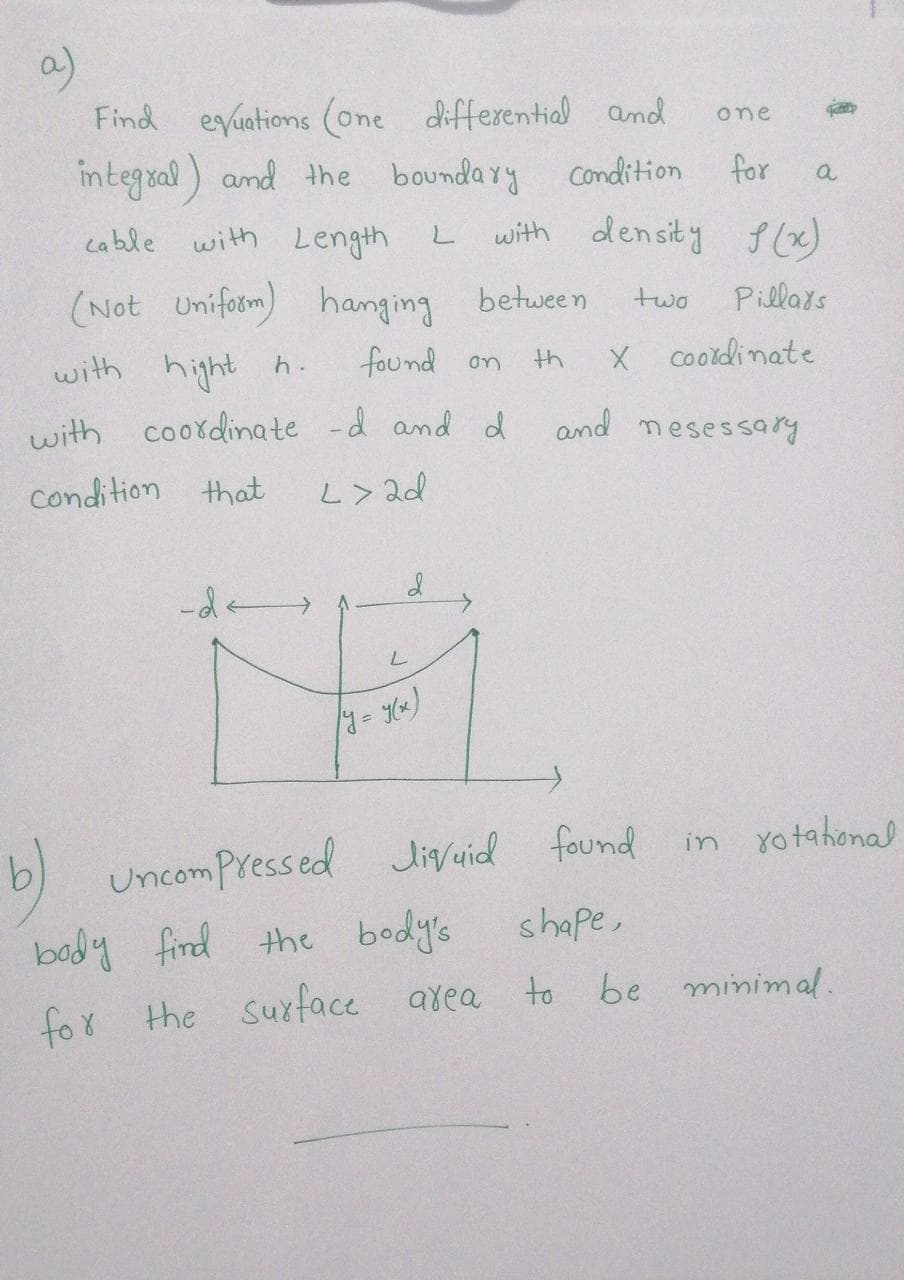 a)
Find equations (one differential and one
integral) and the boundary condition for a
cable with Length L with density ρ(x)
(Not Uniform) hanging between two Pillars
with hight h. found on th X coordinate
with coordinate -d and d and nesessary
condition that L > 2d
-d d
L
y = y(x)
b) Uncompressed liquid found in rotational
body find the body's shape,
for the surface area to be minimal.